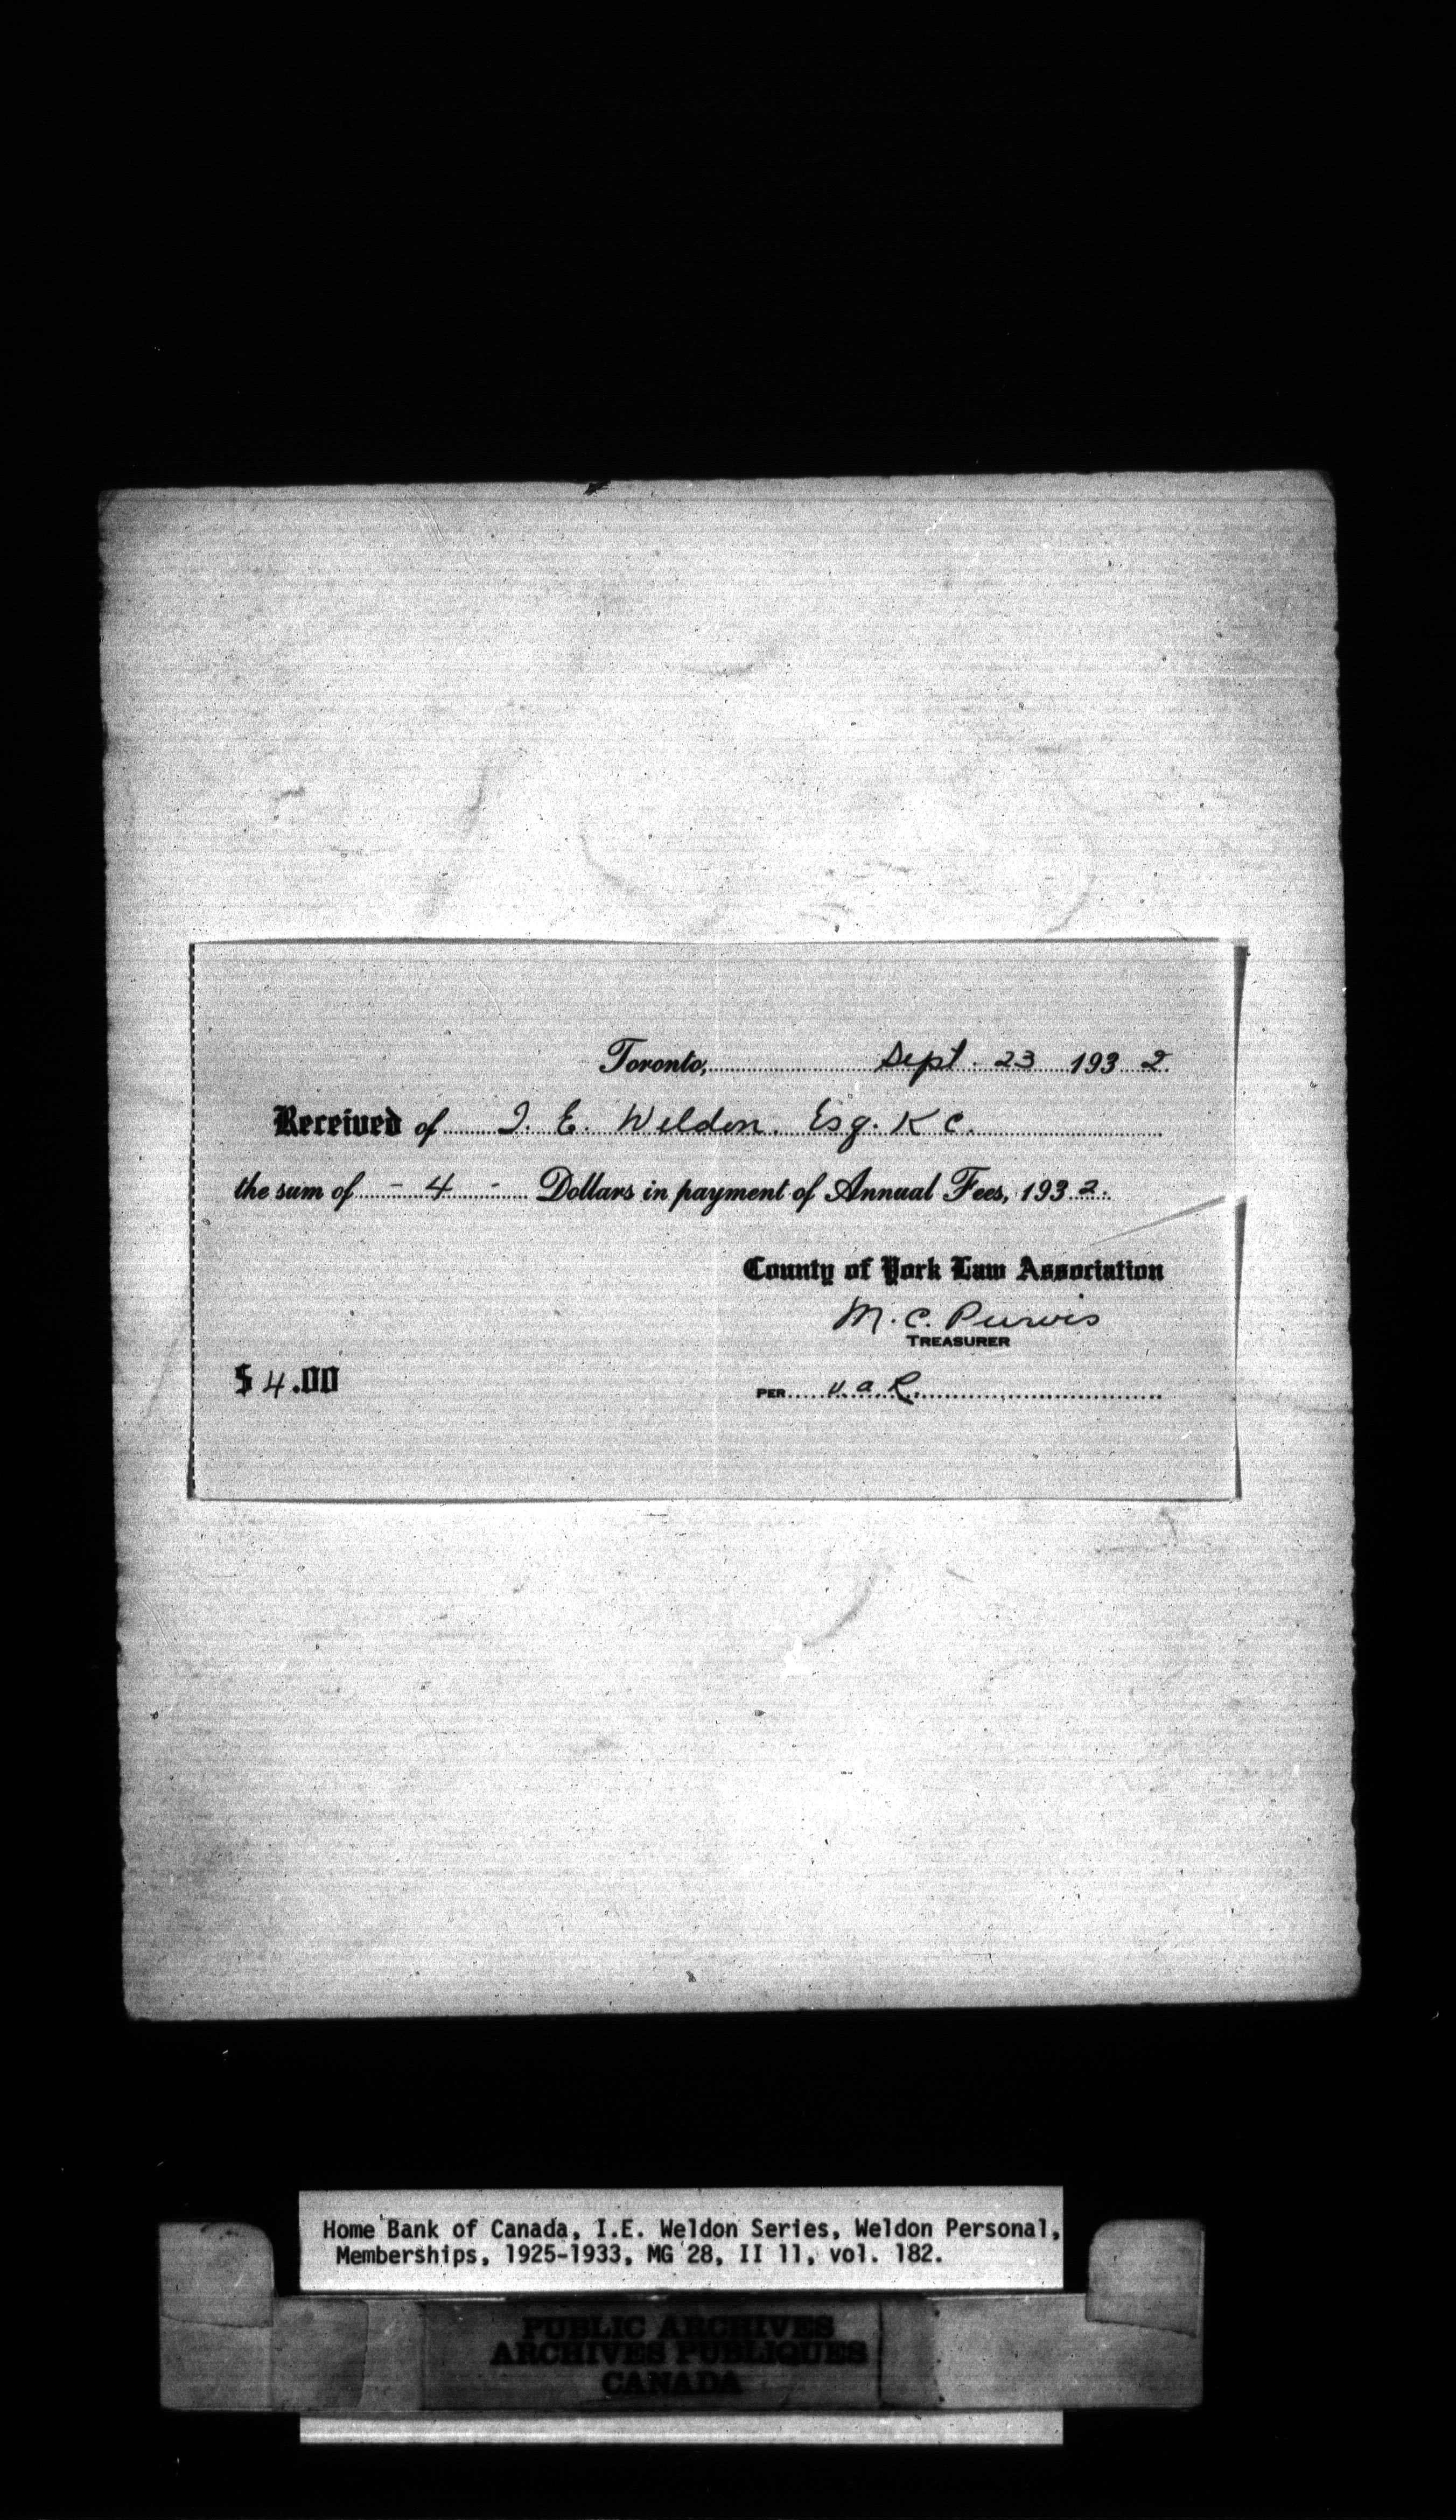 Toronto, Sept. 23 1932.
Received of I. E. Weldon. Esq. K C.
the sum of - 4 - Dollars in payment of Annual Fees, 1932.
County of York Law Association
M. C. Purvis
TREASURER
$4.00
PER V. a. R.
Home Bank of Canada, I.E. Weldon Series, Weldon Personal,
Memberships, 1925-1933, MG 28, II 11, vol. 182.
PUBLIC ARCHIVES
ARCHIVES PUBLIQUES
CANADA